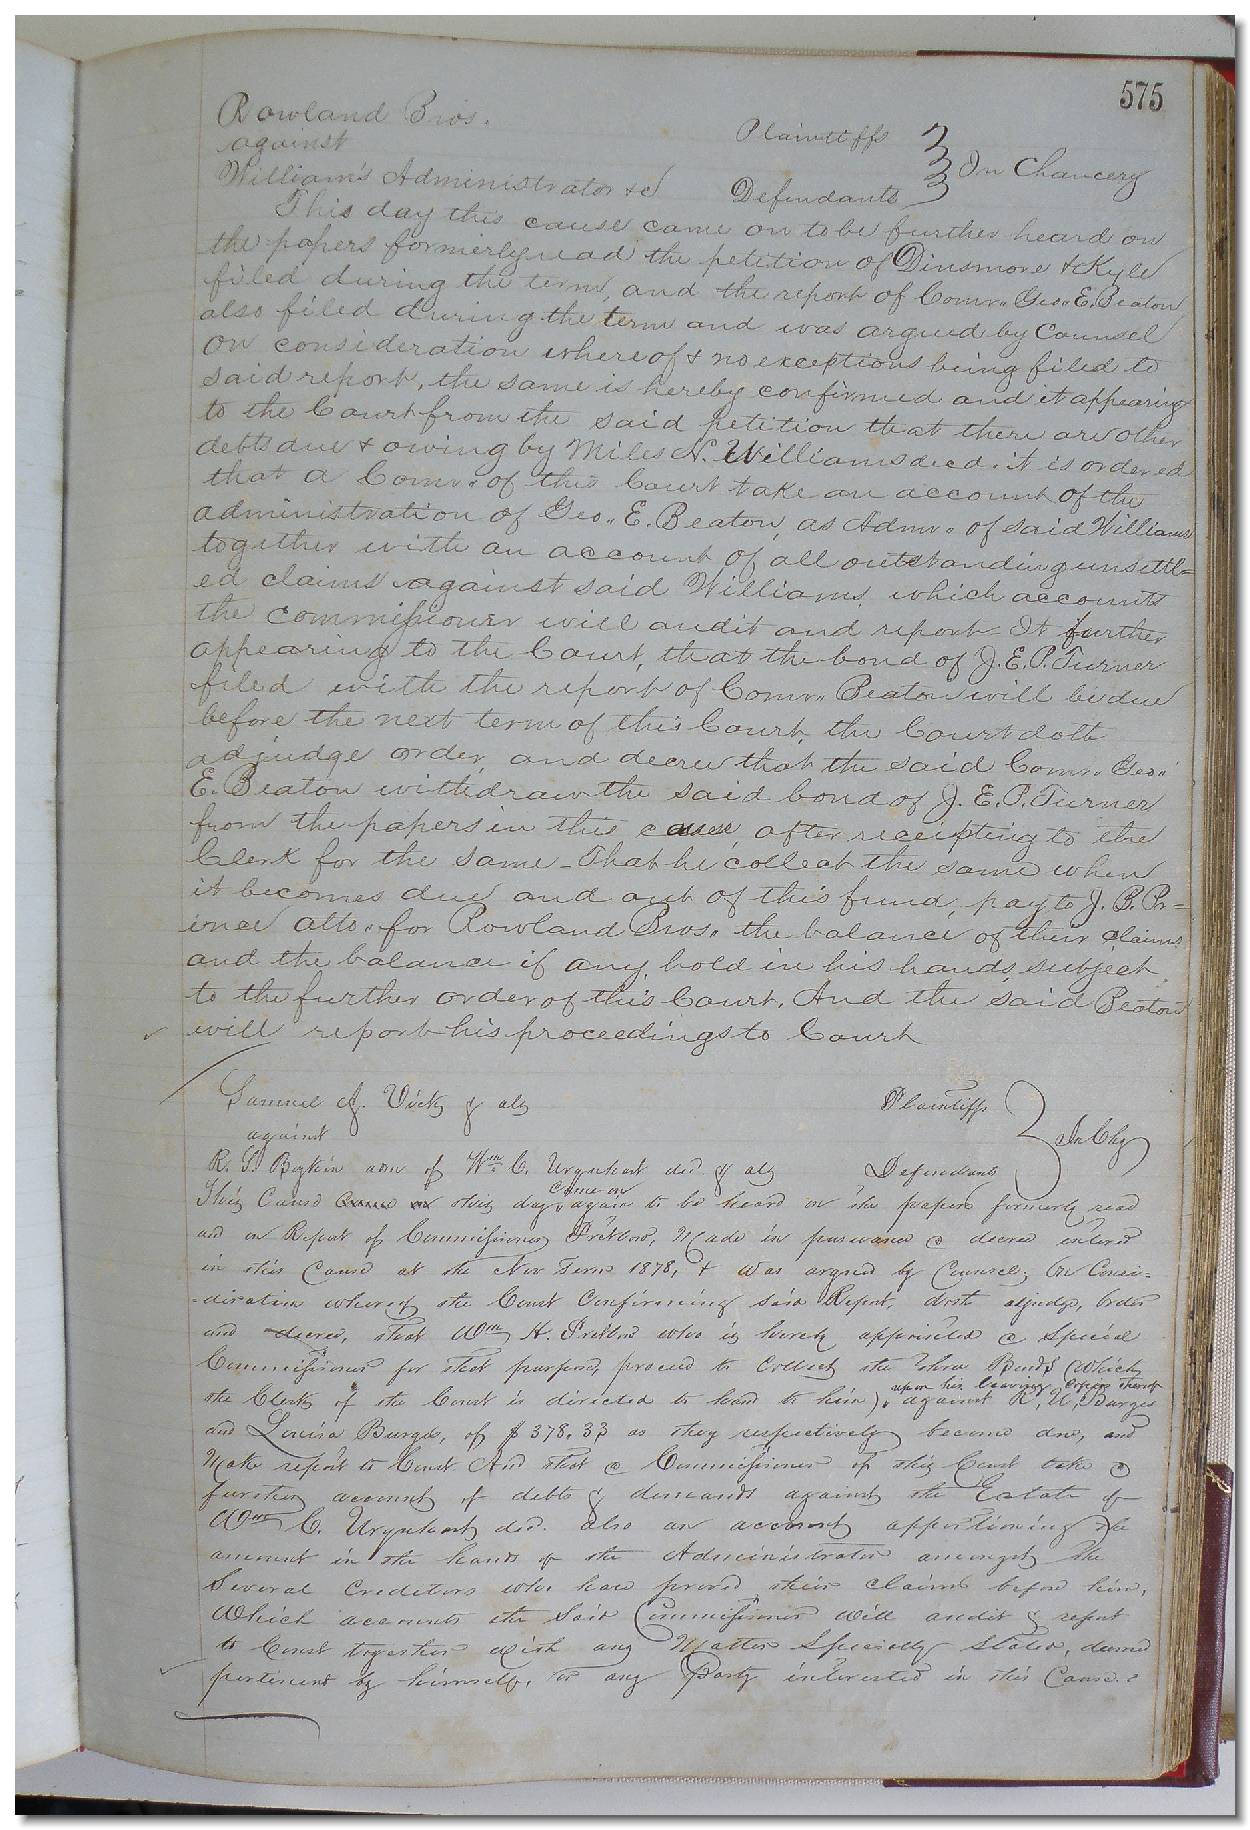 575
Rowland Bros.
against Plaintiffs
In Chancery
William's Administrator &c Defendants
This day this cause came on to be further heard on
the papers formerly read the petition of Dinsmore & Kyle
filed during the term, and the report of Comr. Geo. E. Beaton
also filed during the term and was argued by Counsel
On consideration whereof & no exceptions being filed to
said report, the same is hereby confirmed and it appearing
to the Court from the said petition that there are other
debts due & owing by Miles N. Williams decd. it is ordered
that a Comr. of this Court take an account of the
administration of Geo. E. Beaton, as Admr. of said Williams
together with an account of all outstanding unsettl=
ed claims against said Williams, which accounts
the commissioner will audit and report. It further
appearing to the Court, that the bond of J. E. P. Turner
filed with the report of Comr. Beaton will be due
before the next term of this Court, the Court doth
adjudge order, and decree that the said Comr. Geo.
E. Beaton withdraw the said bond of J. E. P. Turner
from the papers in this cause, after receipting to the
Clerk for the same - That he collect the same when
it becomes due and out of this fund, pay to J. B. Pr=
ince atto. for Rowland Bros. the balance of their claims
and the balance if any, hold in his hands, subject
to the further order of this Court. And the said Beaton
will report his proceedings to Court
Samuel J. Vick & als Plaintiffs
against In Chy
R. S. Boykin adm of Wm C. Urquhart decd & als Defendants
This Cause came on this day came on again to be heard on the papers formerly read
and on Report of Commissioner Pretlow, Made in pursuance a decree entered
in this Cause at the Nov Term 1878, & was argued by Counsel; On Consi=
deration whereof the Court Confirming said Report, doth adjudge, Order
and decree, that Wm H. Pretlow who is hereby appointed a Special
Commissioner for that purpose, proceed to Collect the three Bonds (which
the Clerk of the Court is directed to hand to him), upon his leaving against R. U. Burges
and Louisa Burges, of $378.33 as they respectively become due, and
Make report to Court. And that a Commissioner of this Court take a
further account of debts & demands against the Estate of
Wm C. Urquhart decd. also an account apportioning the
amount in the hands of the Administrator amongst the
Several Creditors who have proved their claims before him,
Which accounts the said Commissioner will audit & report
to Court together with any Matter Specially Stated, deemed
pertinent by himself, or any Party interested in this Cause.